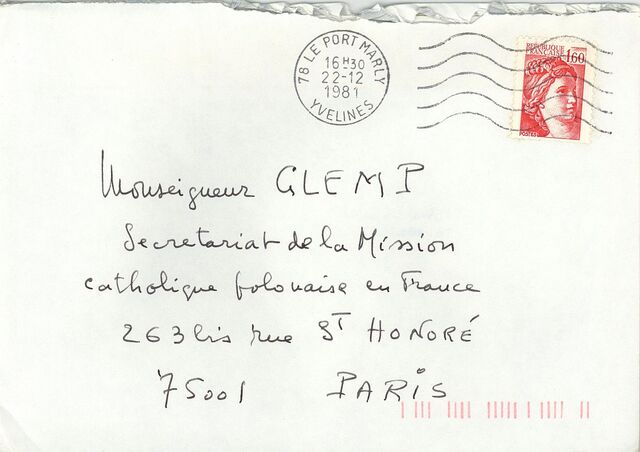 78 LE PORT MARLY
16H30
22-12
1981
YVELINES
REPUBLIQUE
FRANCAISE
1,60
POSTES
Monseigneur GLEMP
Secretariat de la Mission
catholique polonaise en France
263 bis rue ST HONORÉ
75001 PARIS